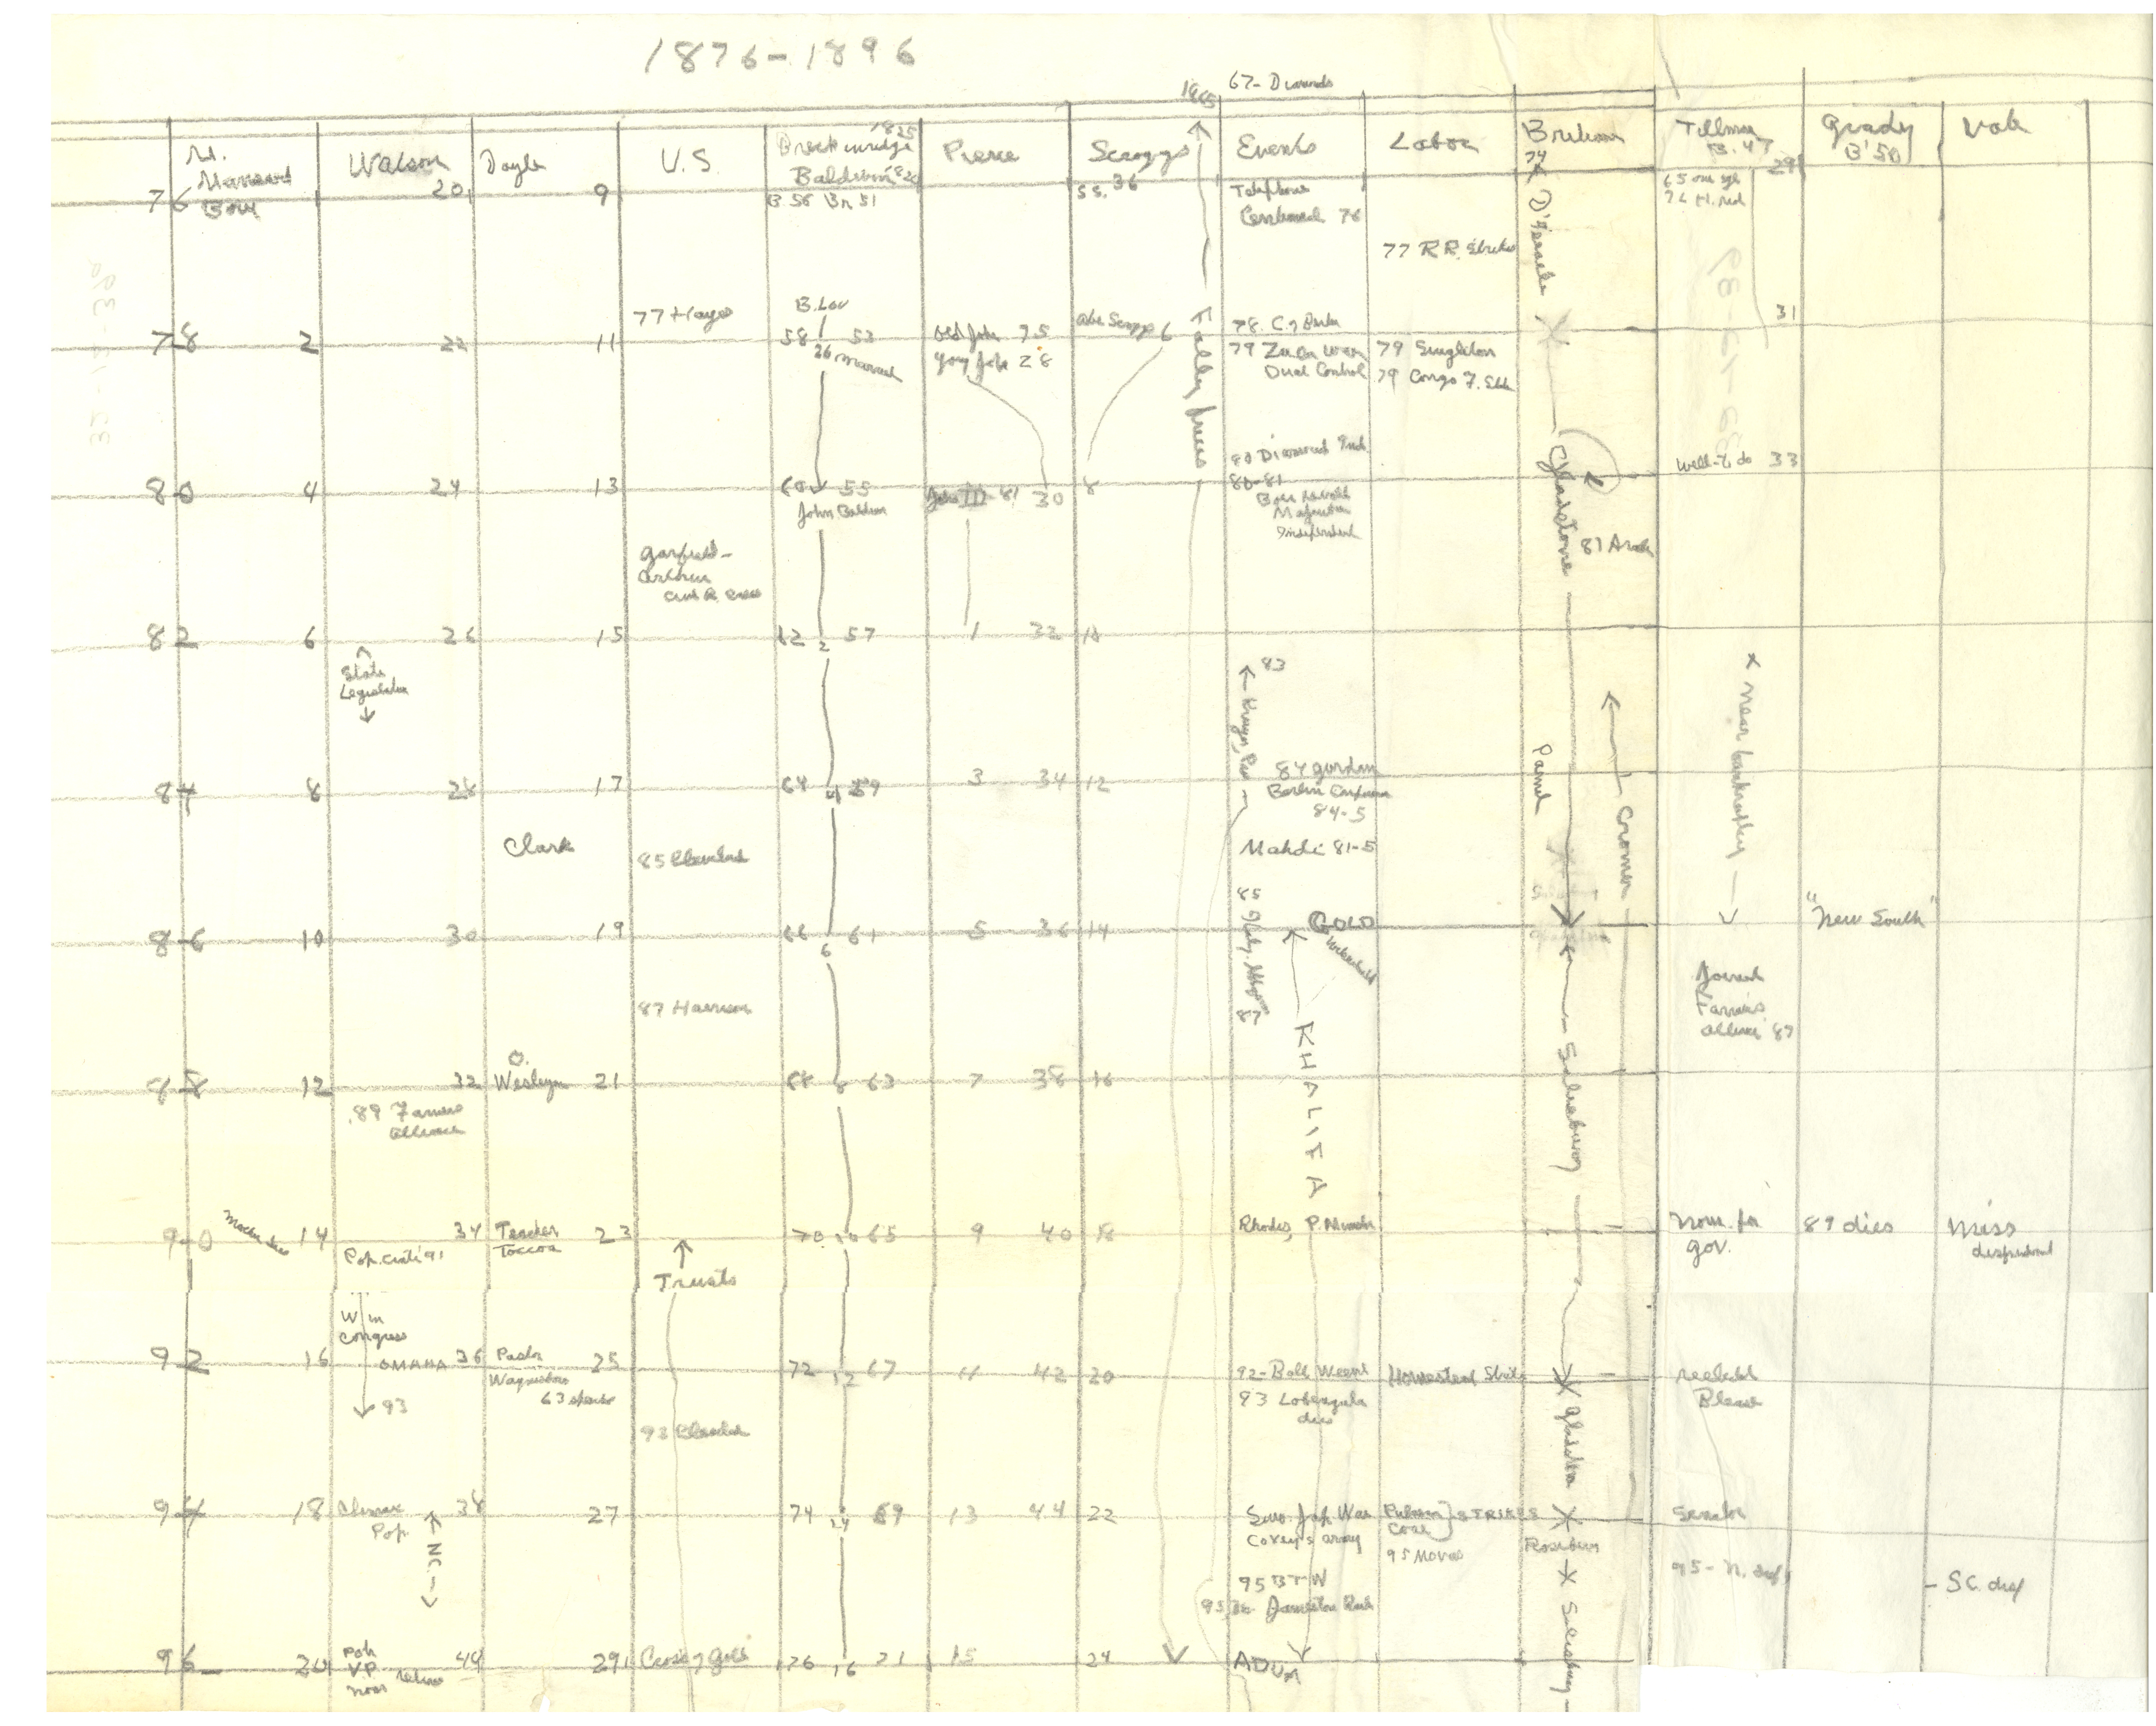 1876-1896
67- Diamonds
1865
M. Mansart Born
Watson
Doyle
U.S.
1825
Breckinridge
Baldwin
Pierce
Scroggs
Events
Labor
Britain
Tillman
B. 47
Grady
B'50
Vote
76 20 9 B. 56 Br 51 SS. 36 74 29
Telephone
Centennial 76
77 R.R. Strikes
D'Israeli
77 Hayes
B. Lou
78 2 22 11 58 53
26 married
Old John 75
Young John 28
Abe Scroggs 6
Falling prices
78. C. of Berlin
79 Zulu War
Dual Control
79 Singleton
79 Congo F. State
31
80 4 24 13 60 55
John Baldwin
John III 81 30 8
80 Diamond Ind.
80-81
Boer Revolt
Majuba
Independent
Gladstone
Well-to do 33
Garfield-
Arthur
81 Arabi
82 6 26 15 62 2 57 1 32 10
State
Legislature
83
Kruger, Pres
x near bankruptcy
84 8 28 17 64 4 59 3 34 12
84 Gordon
Berlin Conference
84-5
Parnell
Cromer
Clark
85 Cleveland
Mahdi 81-5
85 Italy. Abyssinia 87
GOLD
Witwatersrand
86 10 30 19 66 6 61 5 36 14
"New South"
87 Harrison
KHALIFA
Salisbury
Joined
Farmers
Alliance 87
88 12 32 O. Wesleyn 21 68 8 63 7 38 16
89 Farmers
Alliance
90 Mother dies 14 34 Teacher
Toccoa 23 70 10 65 9 40 18
Pop. Conv 91
Rhodes, P. Minister
Nom. for
gov.
89 dies
Miss
disfranch
Trusts
W in
Congress
92 16 OMAHA 36 Pastor
Waynesboro 25 72 12 67 11 42 20
93
92-Boll Weevil
93 Lobengula
dies
Homestead Strike
Gladstone
reelected
93 Cleveland
94 18 Climax
Pop. 38 27 74 14 69 13 44 22
N.C.
Sino-Jap War
Coxey's army
Pullman
Coal } STRIKES
95 Moves
Rosebery
Senator
95 BTW
95 Jameson Raid
95-
- SC. disf
96 20 Pop.
V.P.
Nom 40 29 Cross of Gold 76 16 71 15 24
ADUA
Salisbury